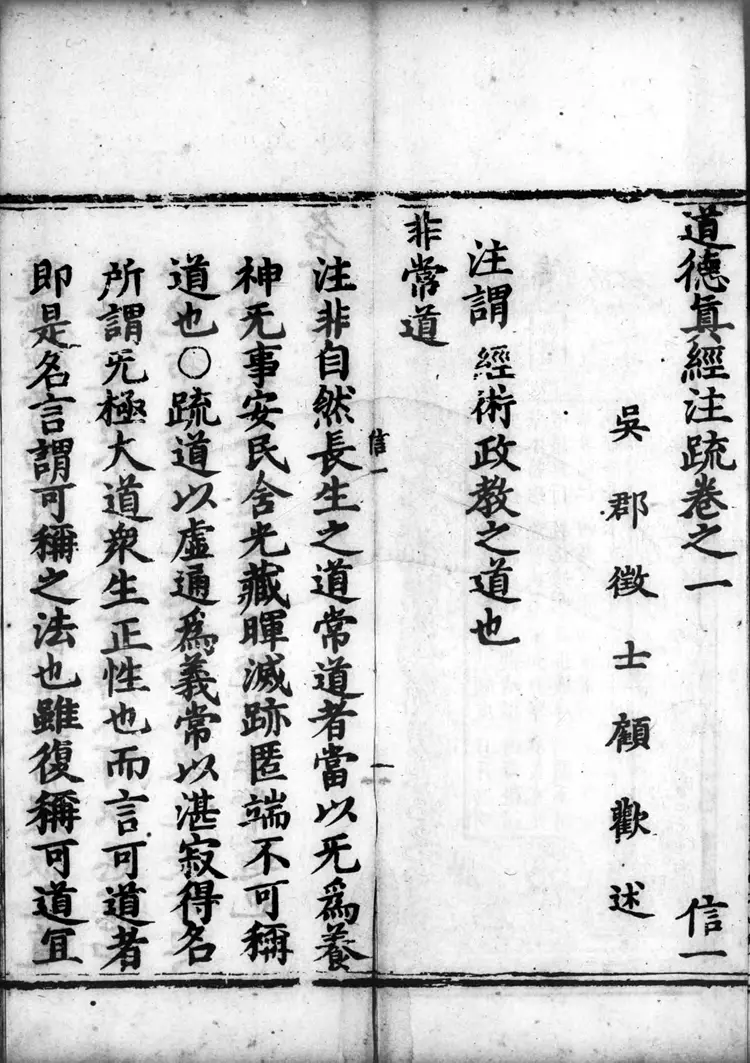 道德真經注疏卷之一 信一
吳郡徵士顧歡述
注謂經術政教之道也
非常道
信一
一
注非自然長生之道常道者當以旡爲養
神旡事安民含光藏暉滅跡匿端不可稱
道也〇疏道以虛通爲義常以湛寂得名
所謂旡極大道衆生正性也而言可道者
即是名言謂可稱之法也雖復稱可道宜